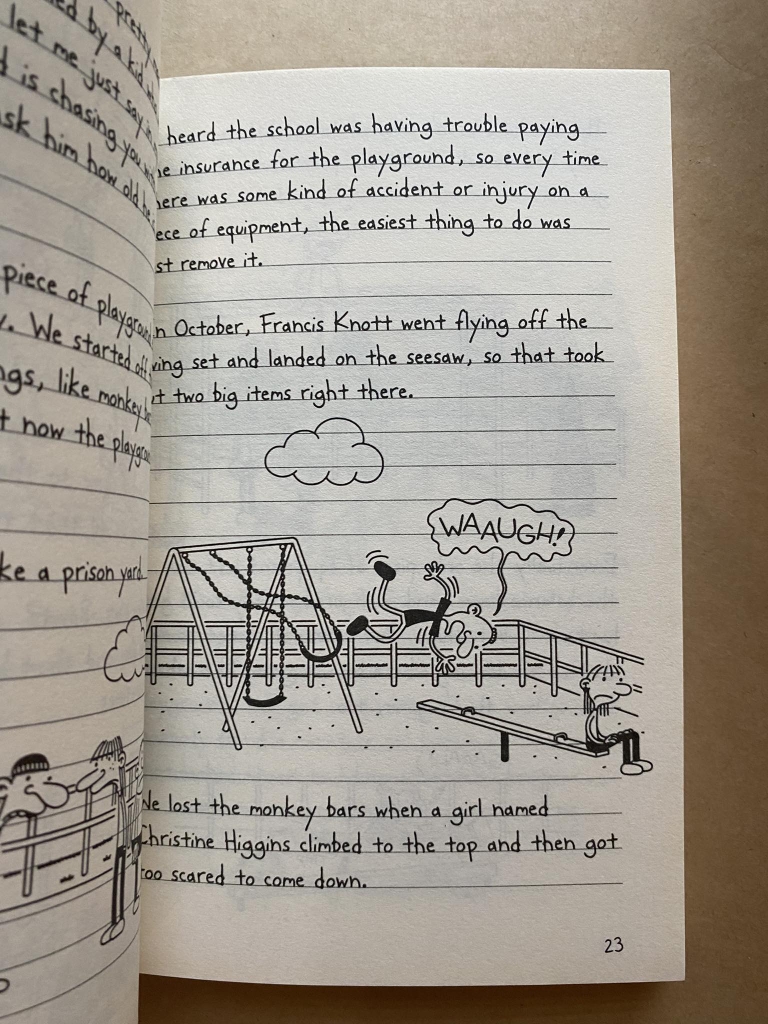 pretty
ed by a kid
let me just say
d is chasing you
sk him how old he
piece of playground
. We started off
ngs, like monkey
t now the playgrou
ke a prison yard.
heard the school was having trouble paying
e insurance for the playground, so every time
ere was some kind of accident or injury on a
ece of equipment, the easiest thing to do was
st remove it.
n October, Francis Knott went flying off the
ing set and landed on the seesaw, so that took
t two big items right there.
WAAUGH!
We lost the monkey bars when a girl named
Christine Higgins climbed to the top and then got
too scared to come down.
23